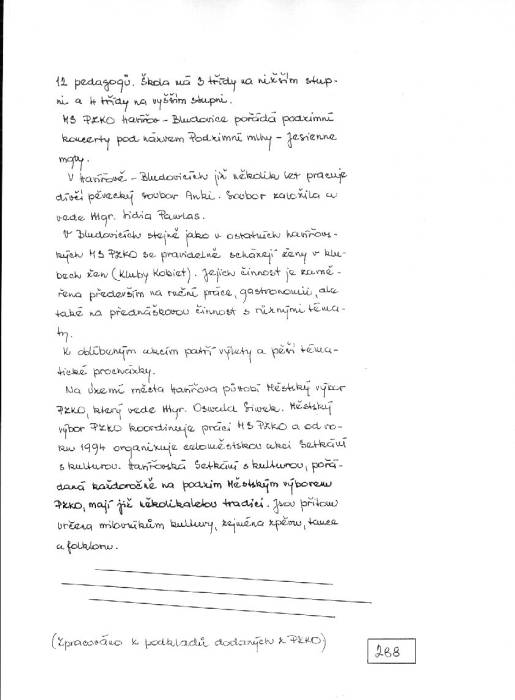 12 pedagogů. Škola má 3 třídy na nižším stup-
ni a 4 třídy na vyšším stupni.
MS PZKO Havířov - Bludovice pořádá podzimní
koncerty pod názvem Podzimní mlhy - Jesienne
mgły.
V Havířově - Bludovicích již několik let pracuje
dívčí pěvecký soubor Anki. Soubor založila a
vede Mgr. Lidia Pawlas.
V Bludovicích stejně jako v ostatních havířovs-
kých MS PZKO se pravidelně scházejí ženy v klu-
bech žen (Kluby Kobiet). Jejich činnost je zamě-
řena především na ruční práce, gastronomii, ale
také na přednáškovou činnost s různými téma-
ty.
K oblíbeným akcím patří výlety a pěší téma-
tické procházky.
Na území města Havířova působí Městský výbor
PZKO, který vede Mgr. Oswald Siwek. Městský
výbor PZKO koordinuje práci MS PZKO a od ro-
ku 1994 organizuje celoměstskou akci Setkání
s kulturou. Havířovská Setkání s kulturou, pořá-
daná každoročně na podzim Městským výborem
PZKO, mají již několikaletou tradici. Jsou přitom
určena milovníkům kultury, zejména zpěvu, tance
a folkloru.
(Zpracováno z podkladů dodaných z PZKO)
288